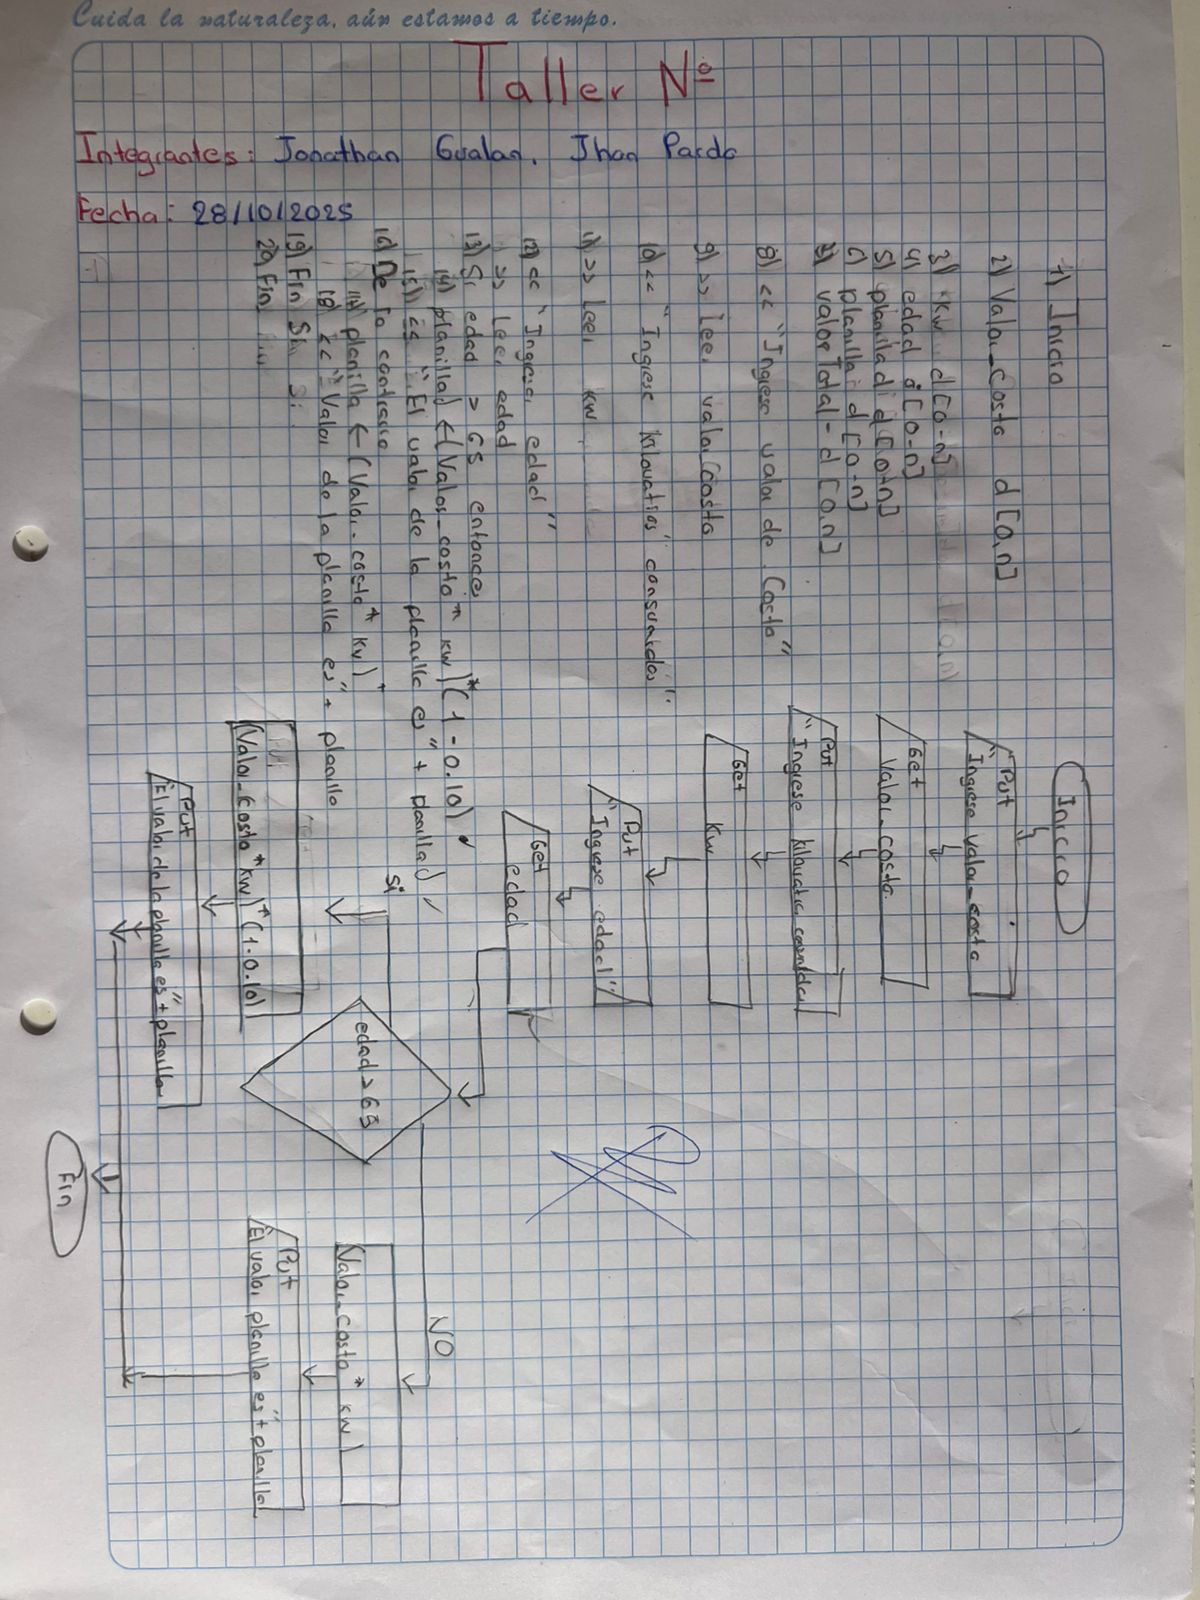 Cuida la naturaleza, aún estamos a tiempo.
Taller Nº
Integrantes: Jonathan Gualan, Jhon Pardo
Fecha: 28/10/2025
1) Inicio
2) Valor_Costo d[0,n]
3) Kw d[0-n]
4) edad d[0-n]
5) planillad d[0-n]
6) planilla d[0-n]
7) valor Total - d[0,n]
8) << "Ingrese valor de Costo"
9) >> Leer valor Costo
10) << "Ingrese kilovatios consumidos"
11) >> Leer kw
12) << "Ingresar edad"
>> Leer edad
13) Si edad > 65 entonces
14) planillad ← (Valor_costo * kw) * (1 - 0.10)
15) << "El valor de la planilla es" + planillad
16) De lo contrario
17) planilla ← (Valor_costo * kw)
18) << "Valor de la planilla es" + planilla
19) Fin Si
20) Fin
Inicio
Put
"Ingrese valor_costo
Get
Valor_costo
Put
"Ingrese kilovatios
Get
Kw
Put
"Ingrese edad"
Get
edad
edad > 65
Si
(Valor_Costo * kw) * (1.0.10)
Put
El valor de la planilla es" + planilla
NO
Valor_costo * kw)
Put
El valor planilla es" + planilla
Fin